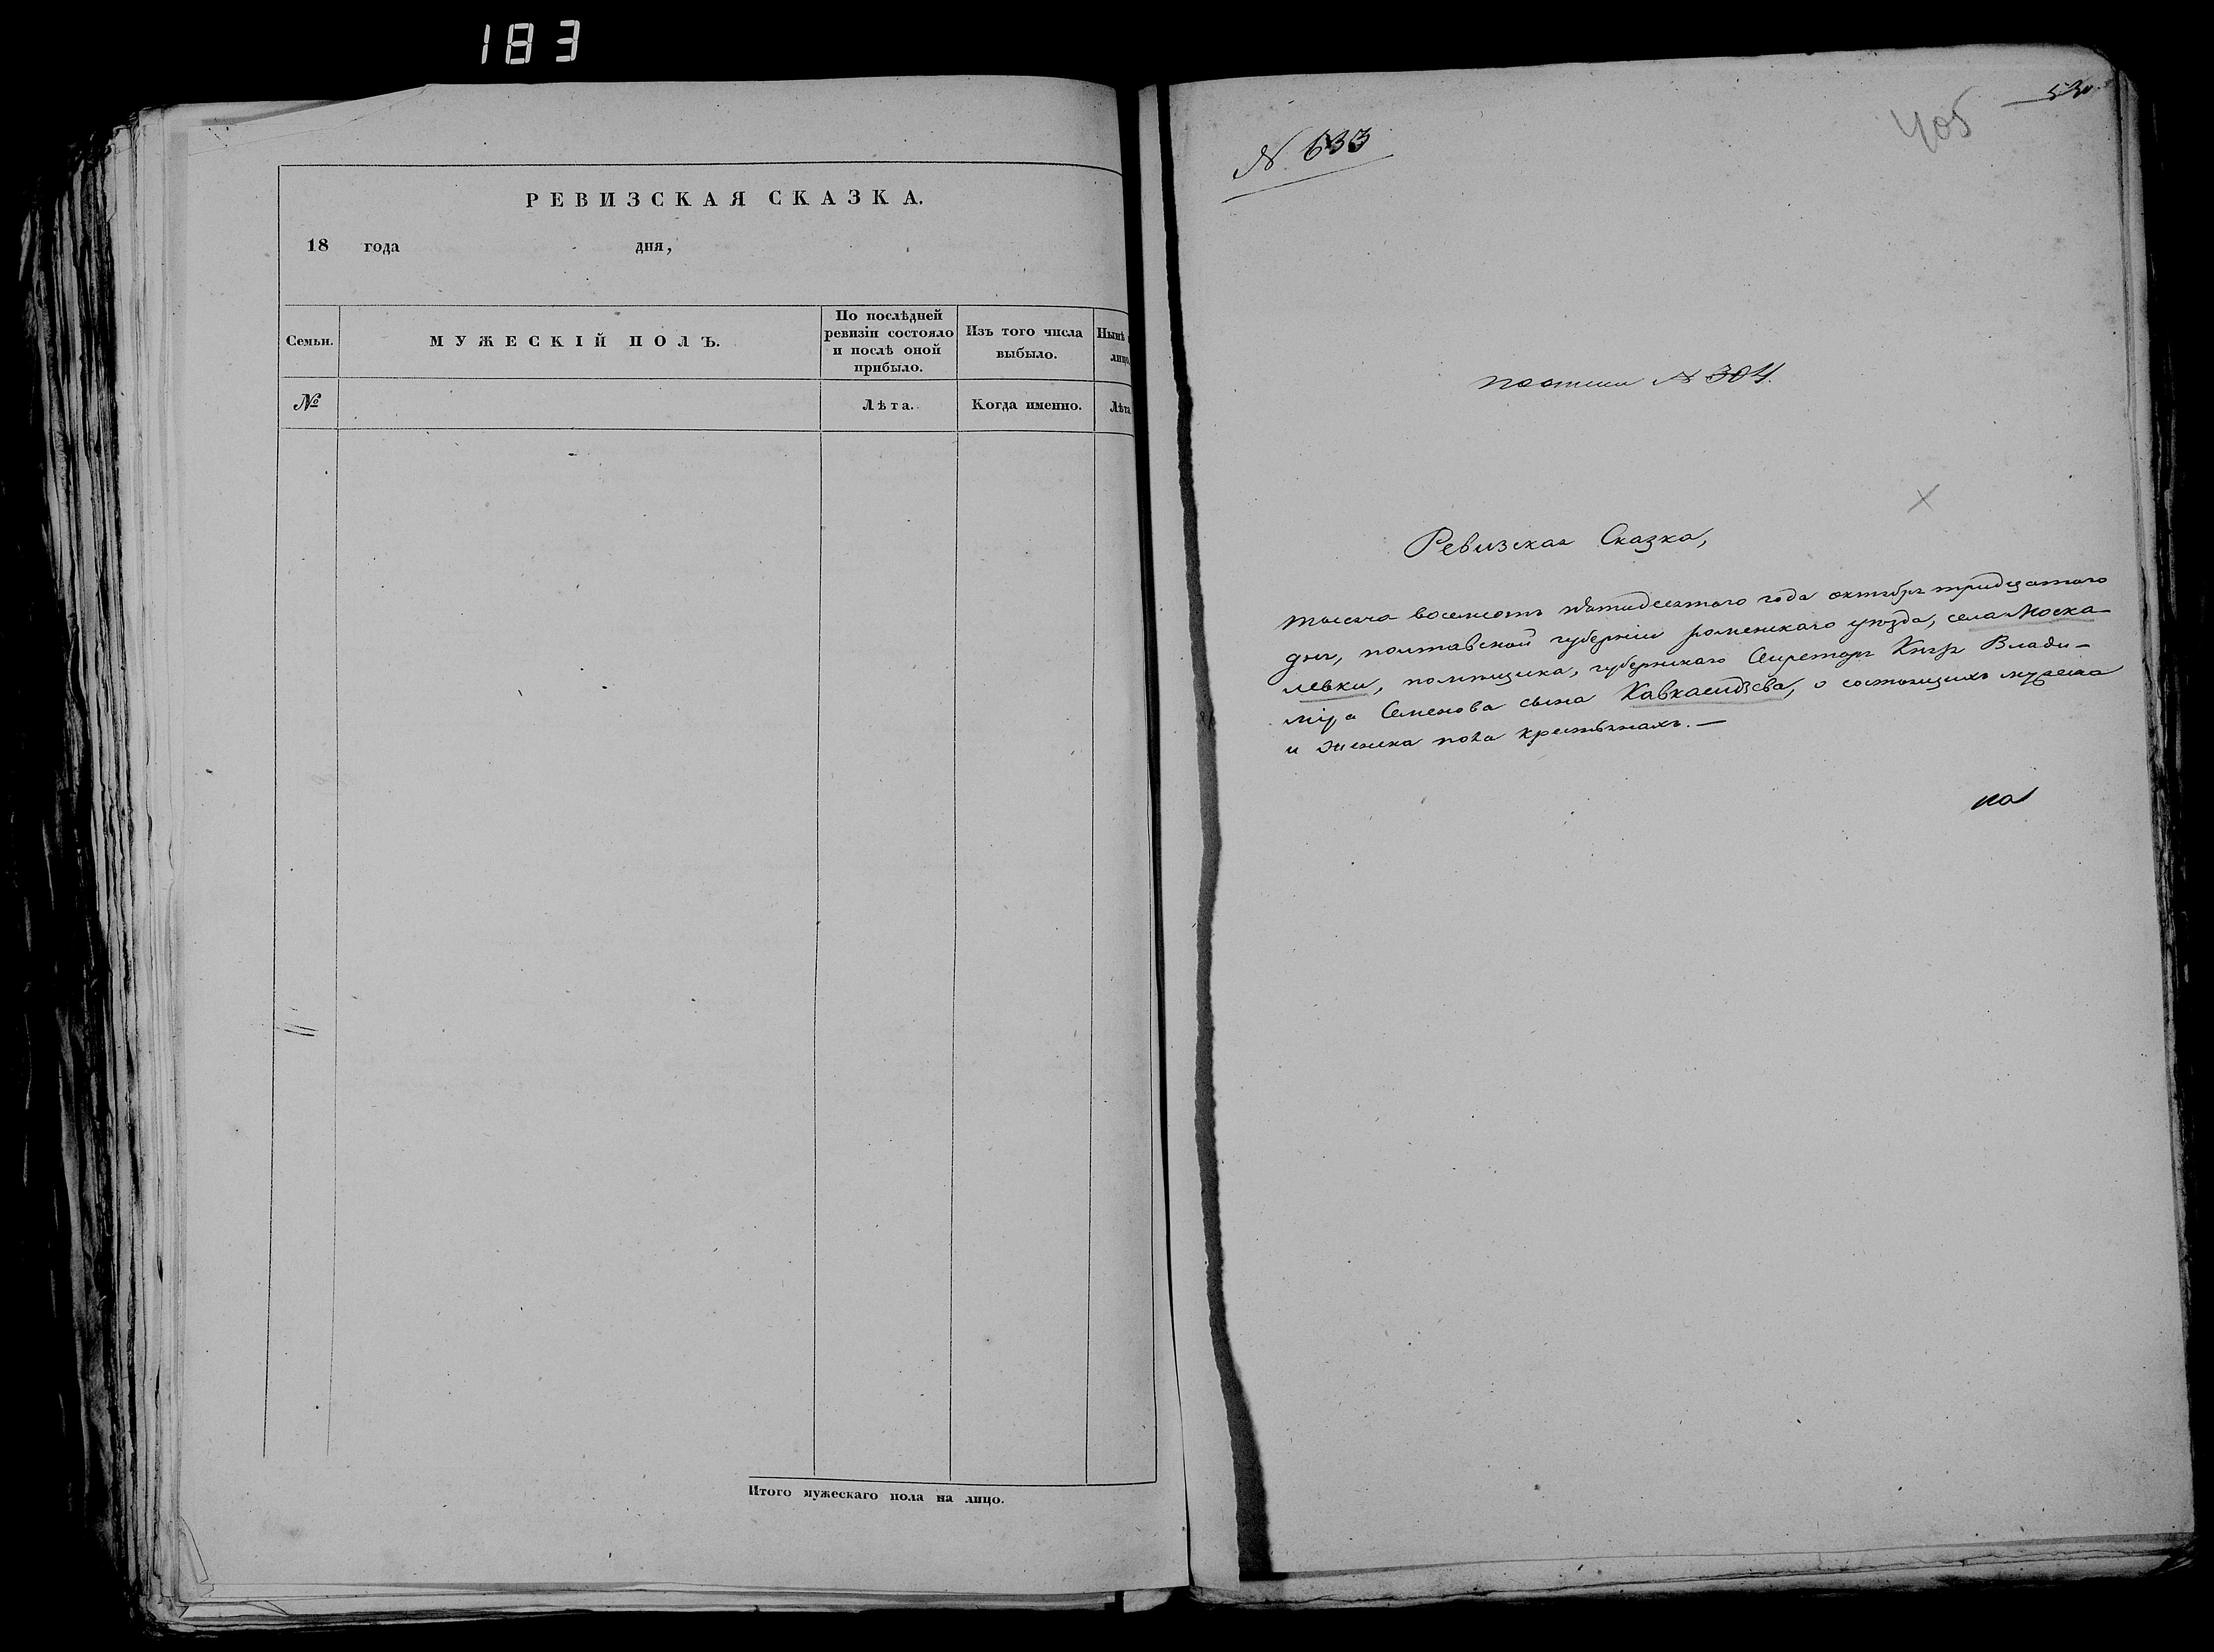 183
РЕВИЗСКАЯ СКАЗКА.
18 года дня,
Семьи.
МУЖЕСКІЙ ПОЛЪ.
По послѣдней
ревизіи состояло
и послѣ оной
прибыло.
Изъ того числа
выбыло.
Нынѣ
лицо
№
Лѣта.
Когда именно.
Лѣта
Итого мужескаго пола на лицо.
405
N 633
N 304.
Ревизская Сказка,
тысяча восемсотъ пятидесятого года октября тридцатого
дня, полтавской губерніи роменскаго уѣзда, села Моска-
левки, помѣщика, губернскаго Секретаря Князя Влади-
міра Семенова сына Кавкасидзева, о состоящихъ мужеска
и женска пола крестьянахъ.—